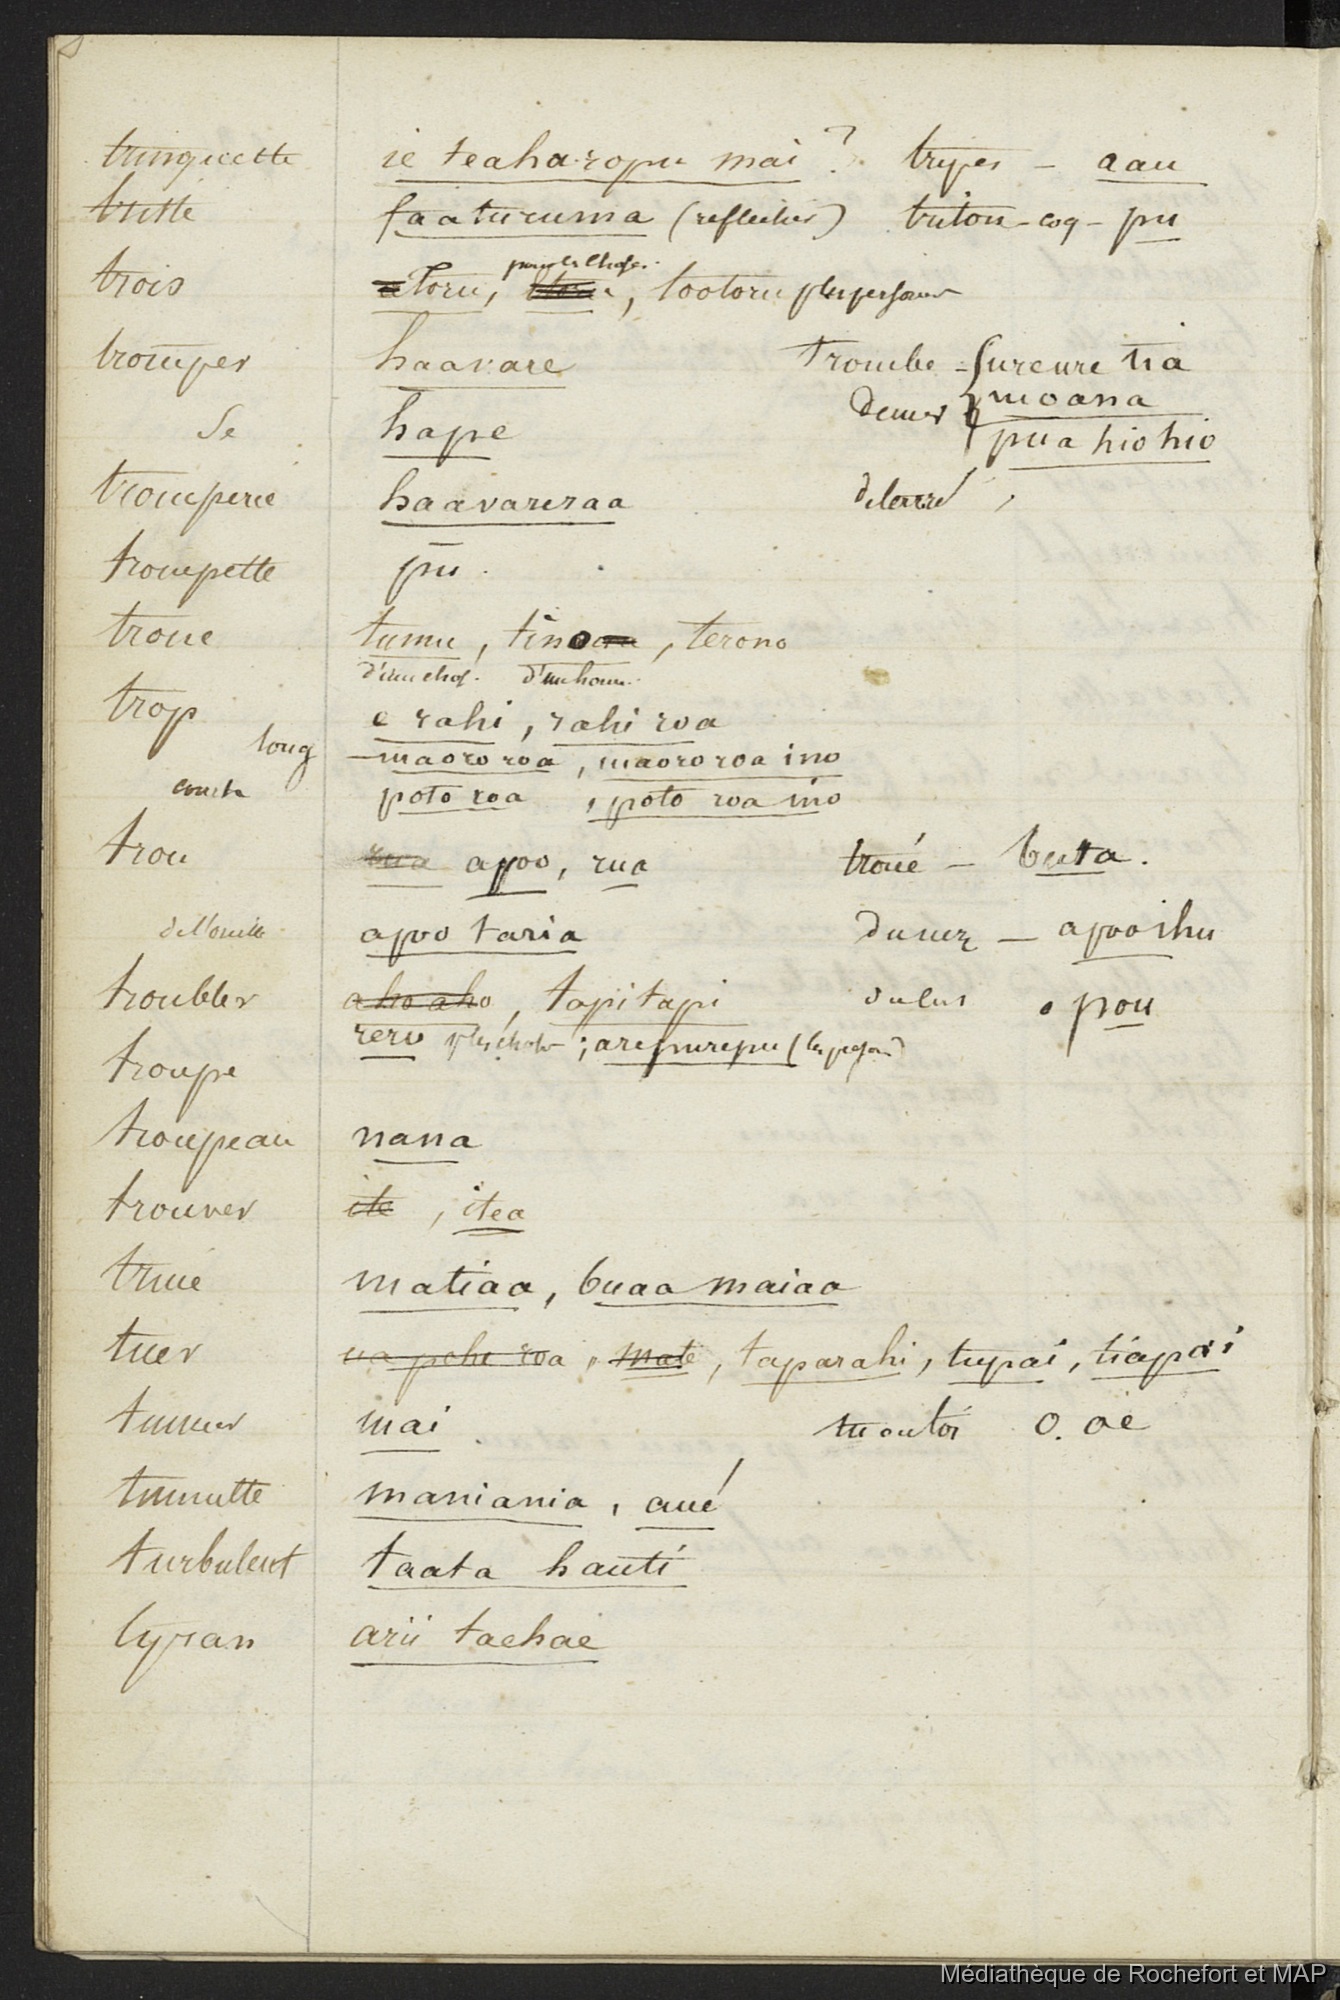 trinquette ie teaharopu mai ? tripes - aau
triste faaturuma (reflechir) triton - coq - pu
pour les choses
trois atoru, etoru, tootoru pr les personnes
tromper haavare Trombe - ureure tia
de mer moana
se hape pua hiohio
tromperie haavareraa de terre
trompette pu.
tronc tumu, tino, terono
d'une chose. d'un homme.
trop e rahi, rahi roa
long - maoro roa, maoro roa ino
courte poto roa, poto roa ino
trou rua apoo, rua troué - buta.
de l'oreille apoo taria du nez - apoo ihu
troubler ahoaho, tapitapi du cul opou
reru pr les choses ; arepurepu (les personnes)
troupe
troupeau nana
trouver ite, itea
truie matiaa, buaa maiaa
tuer ua pohe roa, mate, taparahi, tupai, tiapai
tumeur mai. tu ou toi O. oe
tumulte maniania, aué
turbulent taata hauti
tyran arii taehae
Médiathèque de Rochefort et MAP